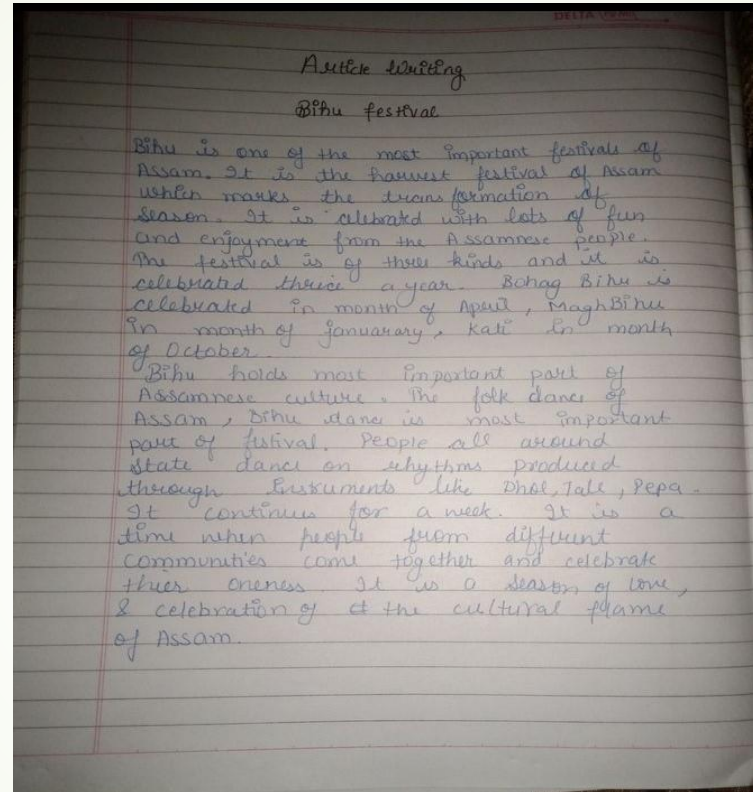 DELTA
Article Writing
Bihu festival
Bihu is one of the most important festivals of
Assam. It is the harvest festival of Assam
which marks the transformation of
season. It is celebrated with lots of fun
and enjoyment from the Assamnese people.
The festival is of three kinds and it is
celebrated thrice a year. Bohag Bihu is
celebrated in month of April, Magh Bihu
in month of januarary, Kati in month
of October.
Bihu holds most important part of
Assamnese culture. The folk dance of
Assam, Bihu dance is most important
part of festival. People all around
state dance on rhythms produced
through Instruments like Dhol, Tale, Pepa.
It continues for a week. It is a
time when people from different
communities come together and celebrate
thier oneness. It is a season of love,
& celebration of the cultural frame
of Assam.